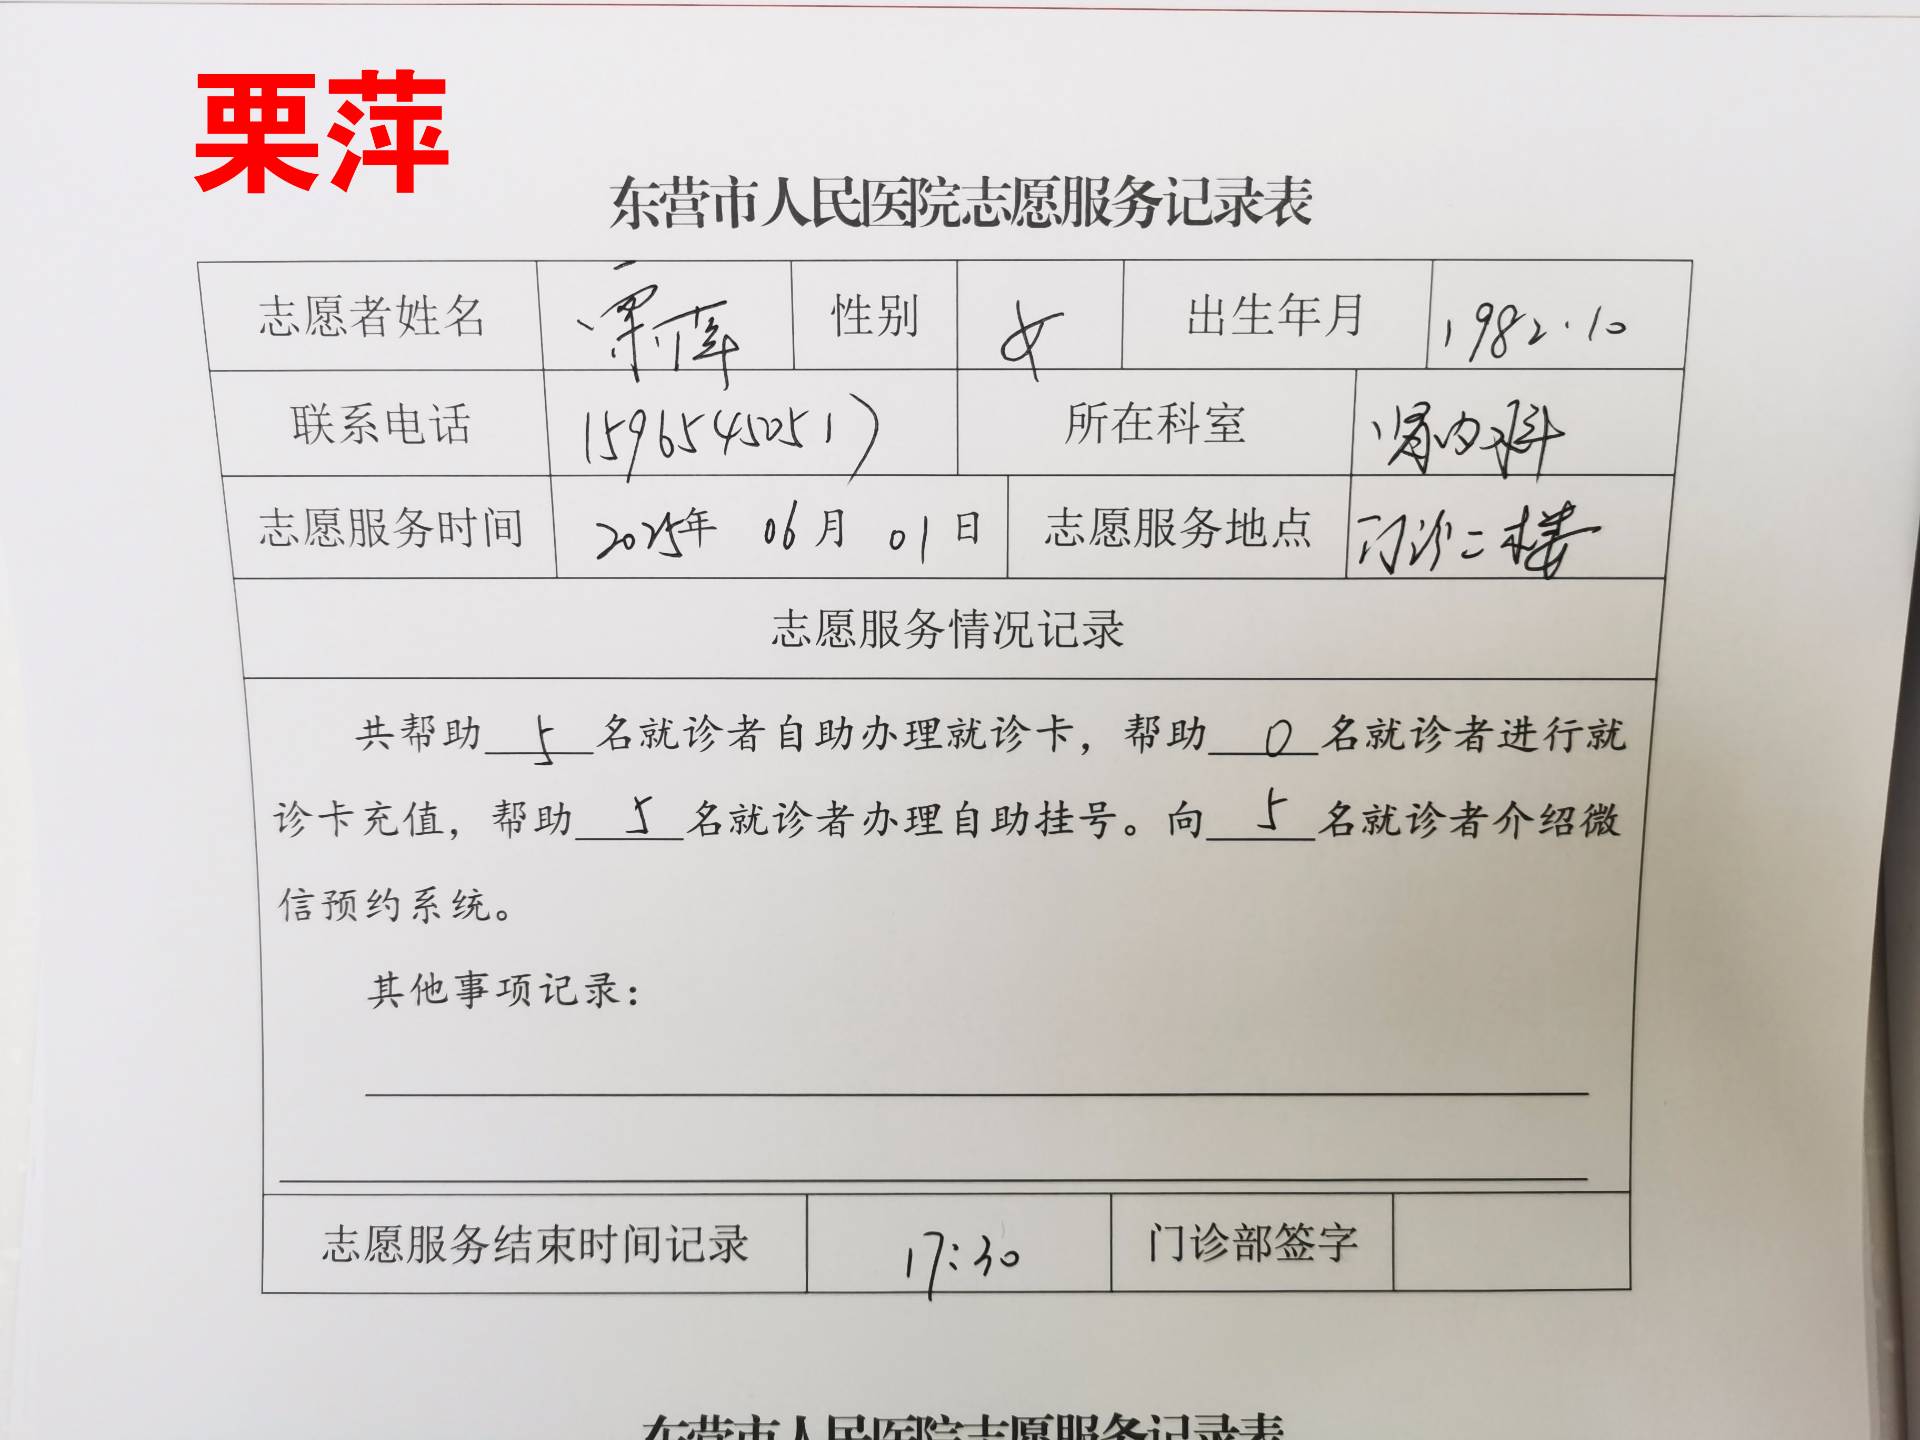 栗萍
东营市人民医院志愿服务记录表
志愿者姓名 栗萍 性别 女 出生年月 1982.10
联系电话 15965450517 所在科室 肾内科
志愿服务时间 2025年 06月 01日 志愿服务地点 门诊二楼
志愿服务情况记录
共帮助 5 名就诊者自助办理就诊卡，帮助 0 名就诊者进行就
诊卡充值，帮助 5 名就诊者办理自助挂号。向 5 名就诊者介绍微
信预约系统。
其他事项记录：
志愿服务结束时间记录 17:30 门诊部签字
东营市人民医院志愿服务记录表